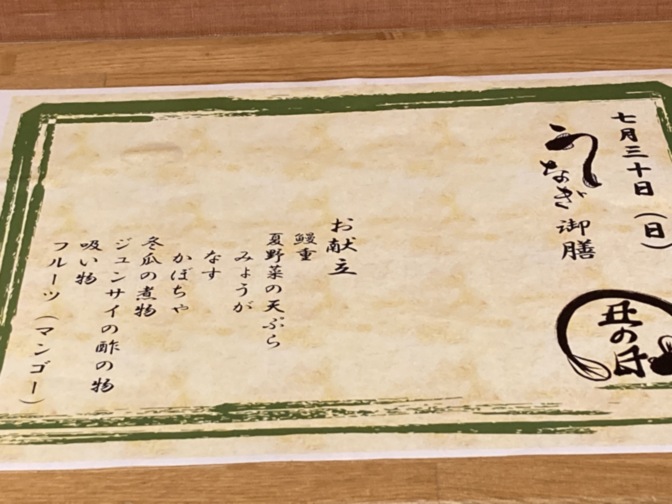 七月三十日（日）
うなぎ御膳
丑の日
お献立
鰻重
夏野菜の天ぷら
みょうが
なす
かぼちゃ
冬瓜の煮物
ジュンサイの酢の物
吸い物
フルーツ（マンゴー）